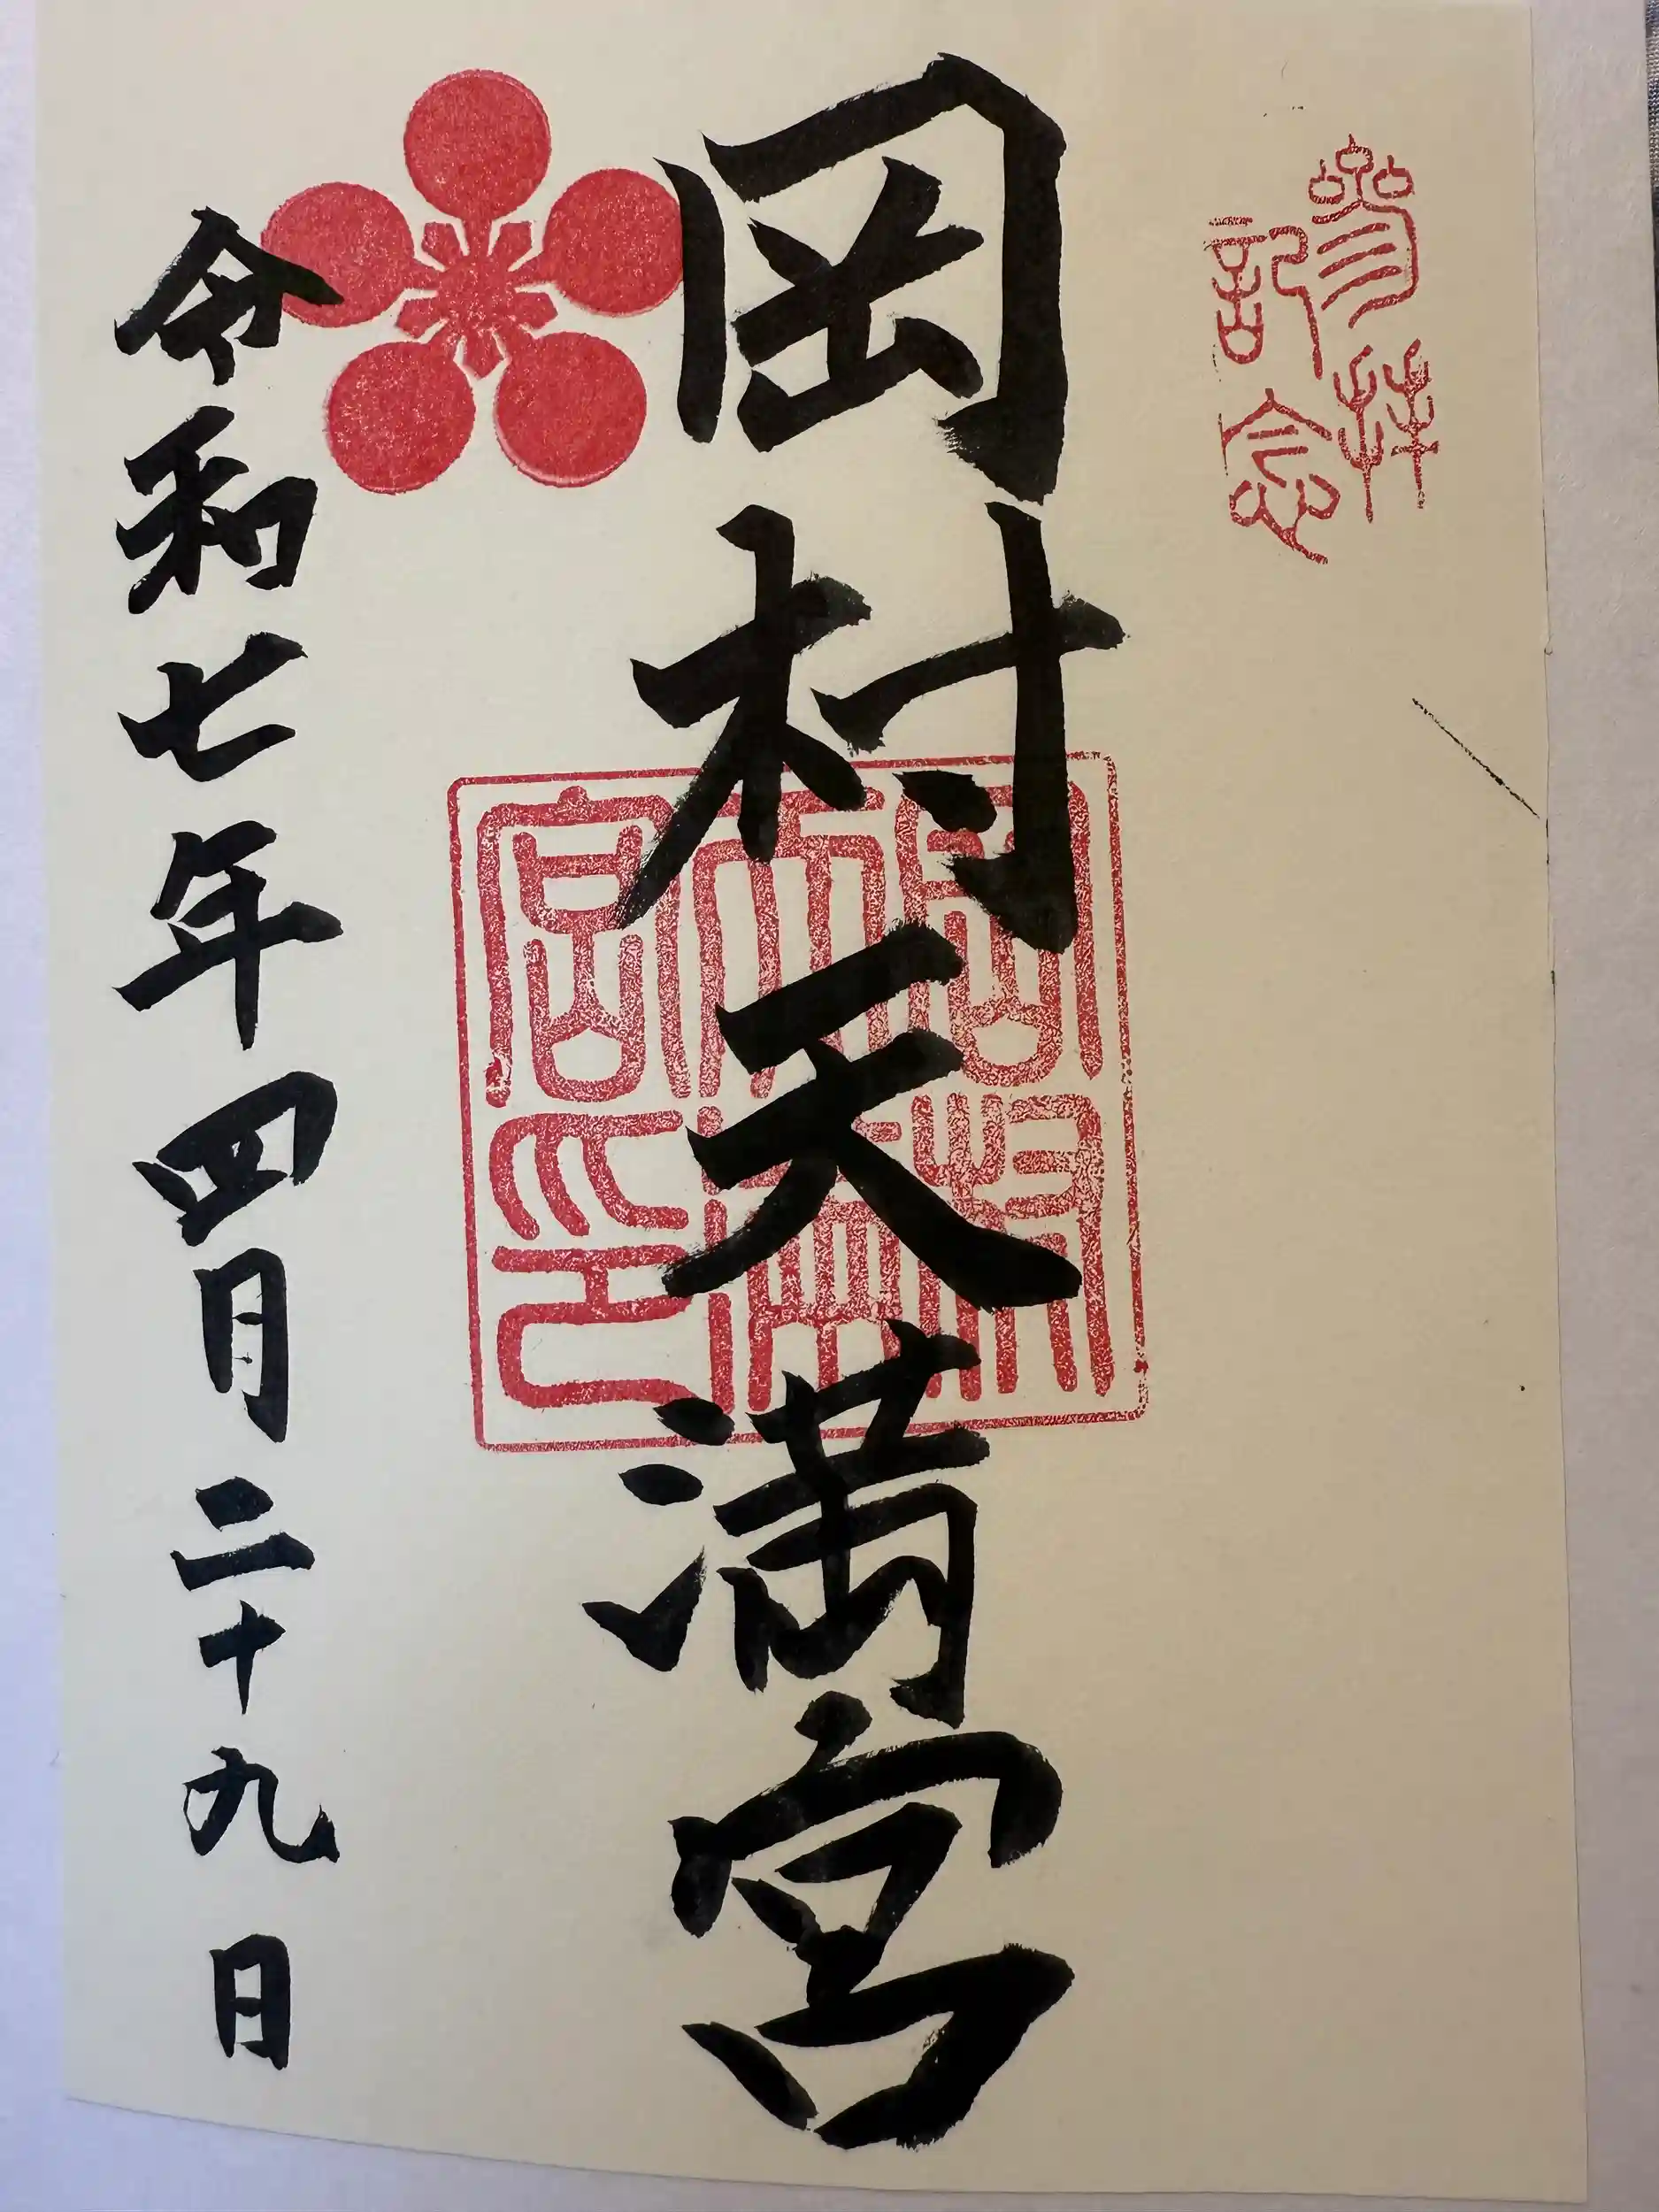 参拝
記念
岡村天満宮
岡村天満宮印
令和七年四月二十九日